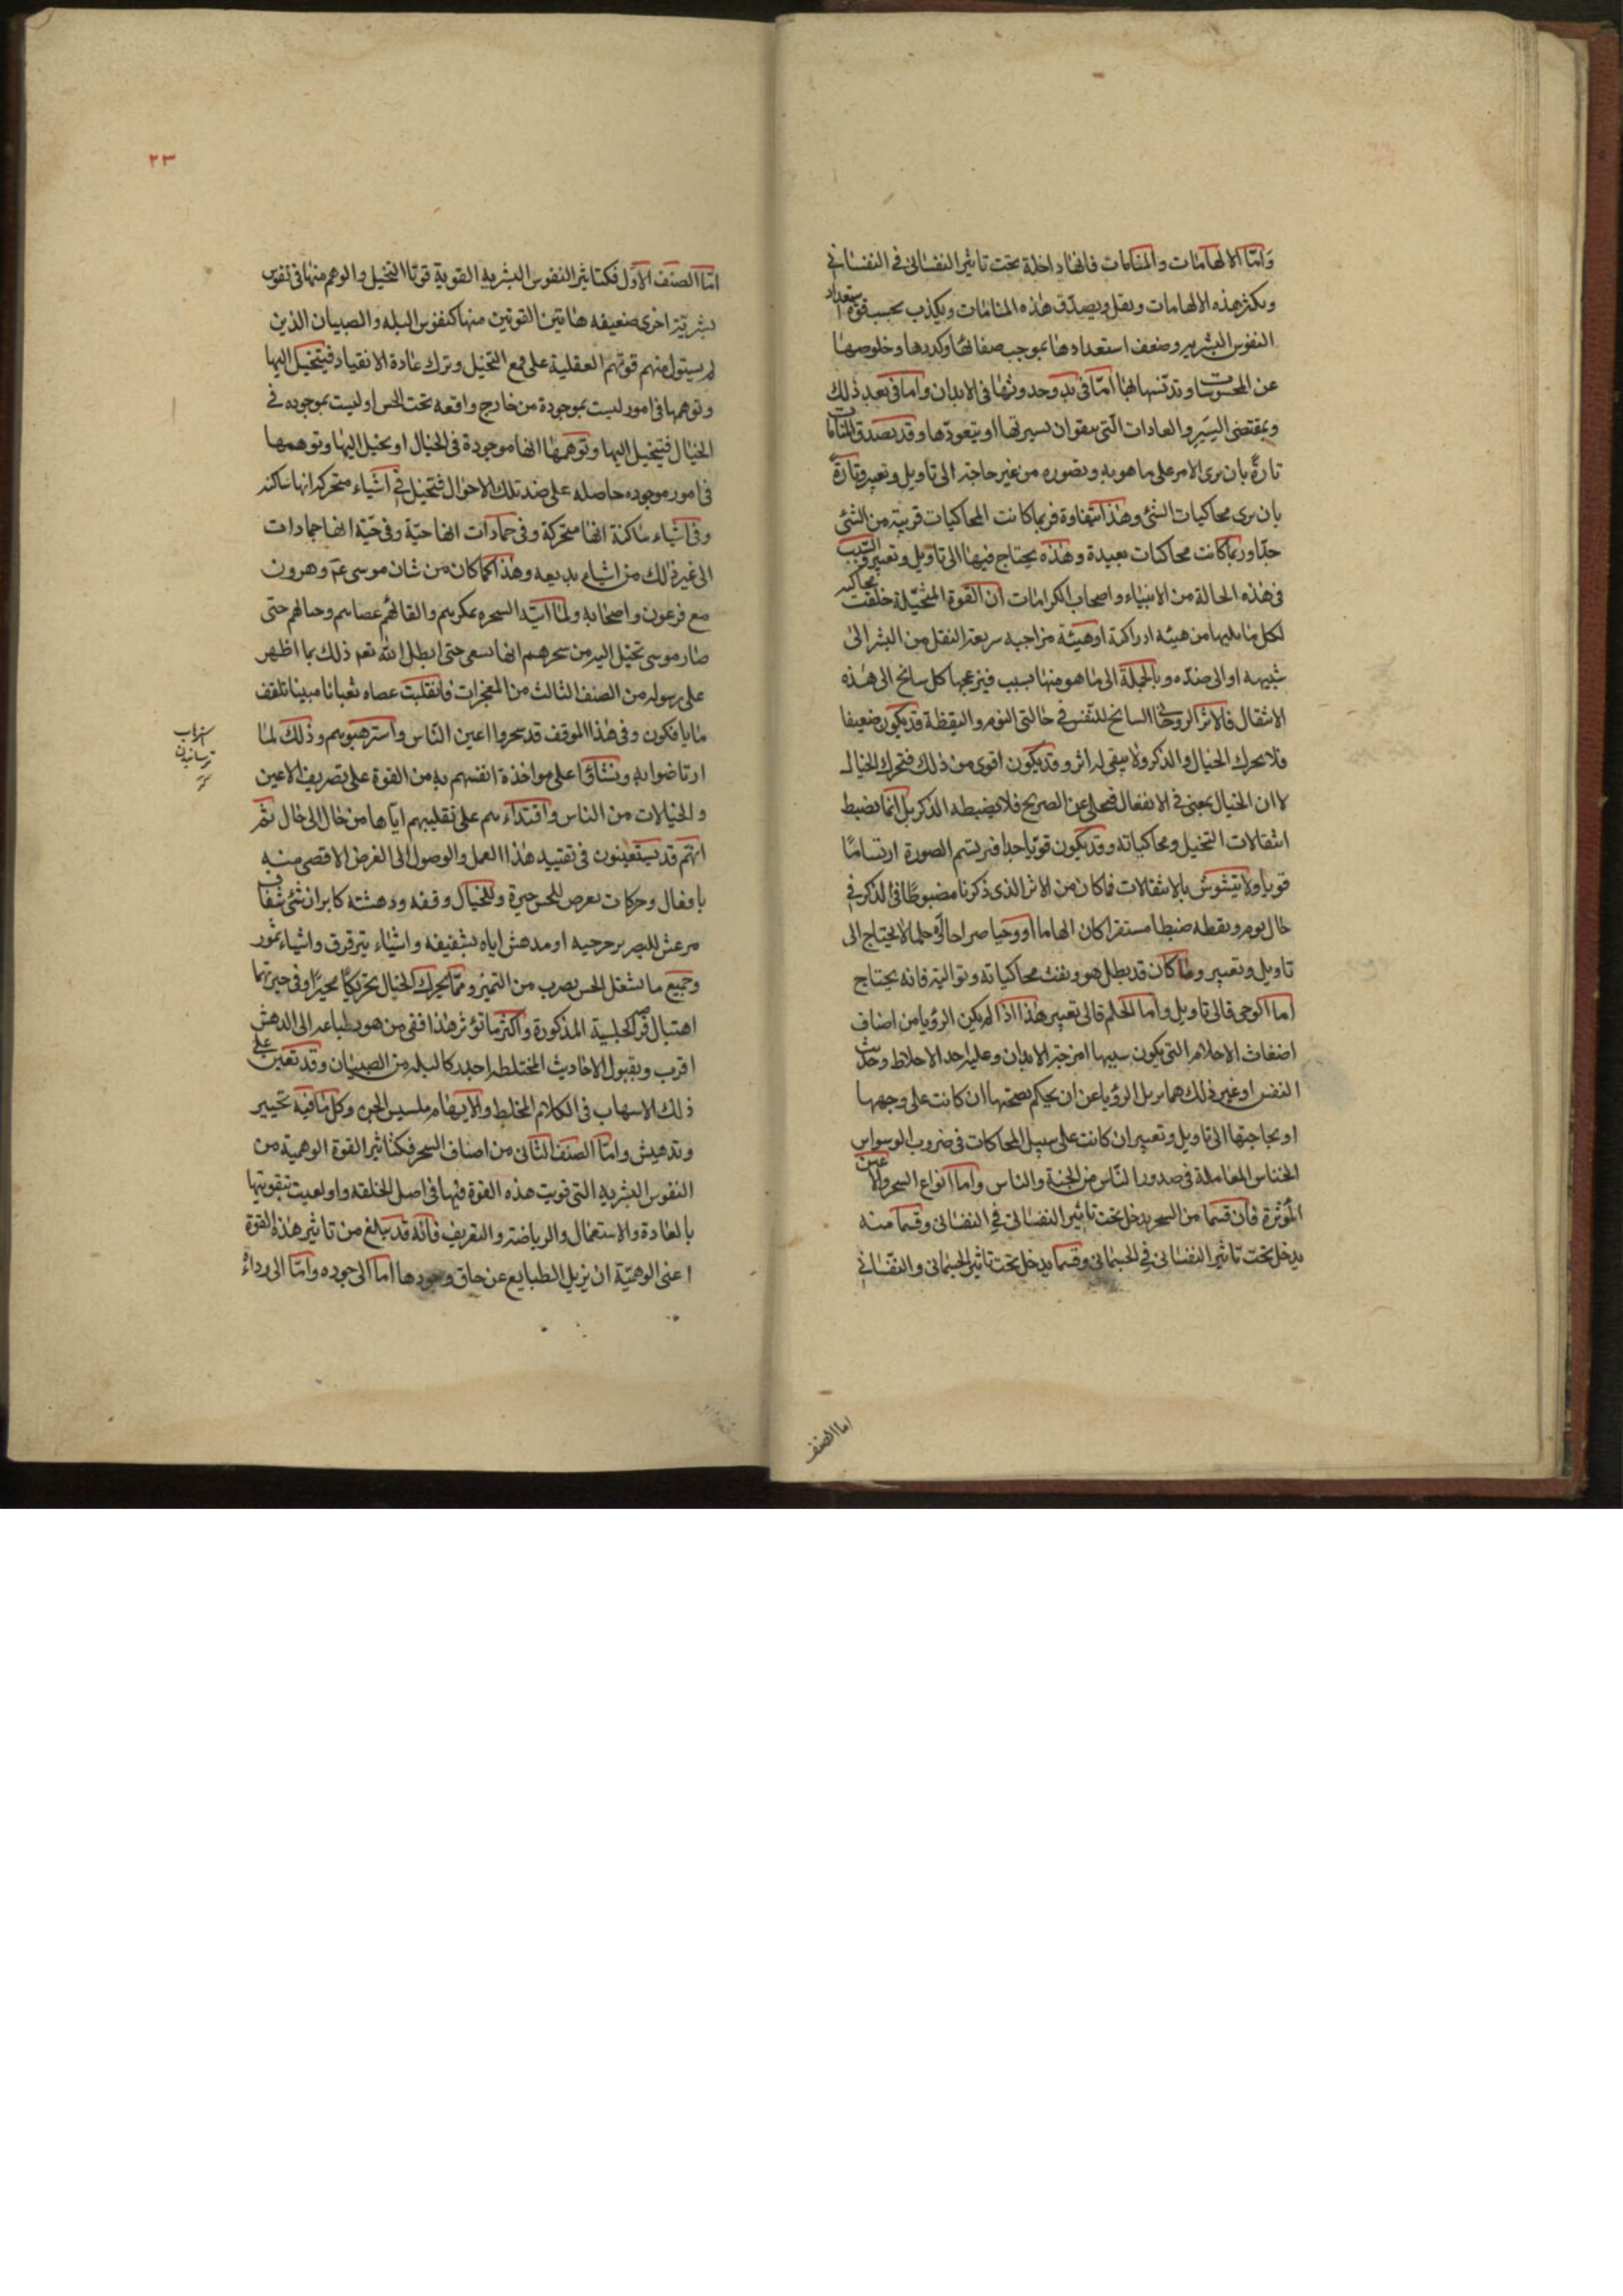 وَامّا الالهامات والمنامات فانها داخلة تحت تاثير النفسانى فى النفسانى
ويكثر هذه الالهامات ويقل ويصدق هذه المنامات ويكذب بحسب قوة استعداد
النفوس البشريه وضعف استعدادها بموجب صفائها وكدرها وخلوصها
عن المحسوسات وتدنسها بها امّا فى بدو حدوثها فى الابدان واما فى بعد ذلك
وبمقتضى السير والعادات التى يتفق ان تسير بها او يتعودها وقد يصدق المنامات
تارةً بان يرى الامر على ما هو به وتصوره من غير حاجة الى تاويل وتعبير وتارةً
بان يرى محاكيات الشئ وهذا متفاوة فربما كانت المحاكيات قريبة من الشئ
جدّا وربما كانت محاكيات بعيدة وهذه يحتاج فيها الى تاويل وتعبير والسبب
فى هذه الحالة من الانبياء واصحاب الكرامات ان القوة المتخيّلة خلقت محاكيه
لكل ما يليها من هيئه ادراكية او هيئة مزاجيه سريعة النقل من الشئ الى
شبيهه او الى ضدّه وبالجملة الى ما هو منها بسبب فيزعجها كل سانح الى هذه
الانتقال فالاثر الروحانى السانح للنفس فى حالتى النوم واليقظة قد يكون ضعيفا
فلا يحرك الخيال والذكر ولا يبقى له اثر وقد يكون اقوى من ذلك فتحرك الخيال
لا ان الخيال يمعن فى الانتقال فيخلى عن الصريح فلا يضبطه الذكر بل انما يضبط
انتقالات التخيل ومحاكياته وقد يكون قويا جدا فيرتسم الصورة ارتسامًا
قويا ولا يتشوش بالانتقالات فما كان من الاثر الذى ذكرنا مضبوطًا فى الذكر فى
حال نوم ويقظه ضبطا مستقرا كان الهاما او وحيا صراحا او حلما لا يحتاج الى
تاويل وتعبير وما كان قد بطل هو وبقيت محاكياته وتواليه فانه يحتاج
اما الوحى فالى تاويل واما الحلم فالى تعبير هذا اذا لم يكن الرؤيا من اصناف
اضغاث الاحلام التى يكون سببها امزجة الابدان وغلبة احد الاخلاط وحديث
النفس او غير ذلك مما يزيل الرؤيا عن ان يحكم بصحتها ان كانت على وجهها
او بحاجتها الى تاويل وتعبير ان كانت على سبيل المحاكات فى ضروب الوسواس
الخناس المعاملة فى صدور الناس من الجنة والناس واما انواع السحر والاعين
المؤثرة فان قسما من السحر يدخل تحت تاثير النفسانى فى النفسانى وقسما منه
يدخل تحت تاثير النفسانى فى الجسمانى وقسما يدخل تحت تاثير الجسمانى والنفسانى
اما الصنف
٢٣
امّا الصنف الاول فكتاثير النفوس البشريه القوية قوتا التخيل والوهم منها فى نفوس
بشريّة اخرى ضعيفه هاتين القوتين منها كنفوس البله والصبيان الذين
لم يستول منهم قوتهم العقلية على قمع التخيل وترك عادة الانقياد فيتخيل اليها
وتوهمها فى امور ليست بموجودة من خارج واقعه تحت الحس او ليست بموجوده فى
الخيال فيتخيل اليها وتوهمها انها موجودة فى الخيال او يخيل اليها وتوهمها
فى امور موجوده حاصله على ضد تلك الاحوال فتخيل فى اشياء متحركه انها ساكنه
وفى اشياء ساكنة انها متحركة وفى جمادات انها حيّة وفى حيّة انها جمادات
الى غير ذلك من اشياء بديعه وهذا كما كان من شان موسى عم وهرون
مع فرعون واصحابه ولما اتته السحره بمكرهم والقائهم عصاهم وحبالهم حتى
صار موسى تخيل اليه من سحرهم انها تسعى حتى ابطل الله تعم ذلك بما اظهر
على رسوله من الصنف الثالث من المعجزات وانقلبت عصاه ثعبانا مبينا تلقف
ما يافكون وفى هذا الموقف قد سحروا اعين النّاس واسترهبوهم وذلك لما
ارتاضوا به على مواخذة انفسهم به من القوة على تصريف الاعين
والخيالات من الناس واقتداءهم على تقليبهم اياها من حال الى حال ثم
انهم قد يستعينون فى تقتييد هذا العمل والوصول الى الغرض الاقصى منه
بافعال وحركات يعرض للحس حيرة وللخيال وقفه ودهشته كابراز شئ شفاف
مرعش للبصر برجرجيه او مدهش اياه بشفيفه واشياء يترقرق واشياء تمور
وجميع ما يشغل الحس بضرب من التميز ومما يحرك الخيال تحريكًا محيرًا وفى حيرتهما
اهتبال المذكورة واكثر ما تؤثر هذا ففى من هو بطباعه الى الدهش
اقرب وبقبول الاحاديث المختلطه اجدر كالبله من الصبيان وقد تعين على
ذلك الاسهاب فى الكلام المخلط والايهام مسيس الجن وكل ما فيه تحيير
وتدهيش واما الصنف الثانى من اصناف السحر فكتاثير القوة الوهمية من
النفوس البشريه التى قويت هذه القوة فيها فى اصل الخلقه واو لعيت بتقويتها
بالعادة والاستعمال والرياضة والتقريف فانه قد يبلغ من تاثير هذه القوة
اعنى الوهميّة ان يزيل الطبايع عن حاق وجودها اما الى جوده وامّا الى رداءة
استرهاب
ترسانيدن